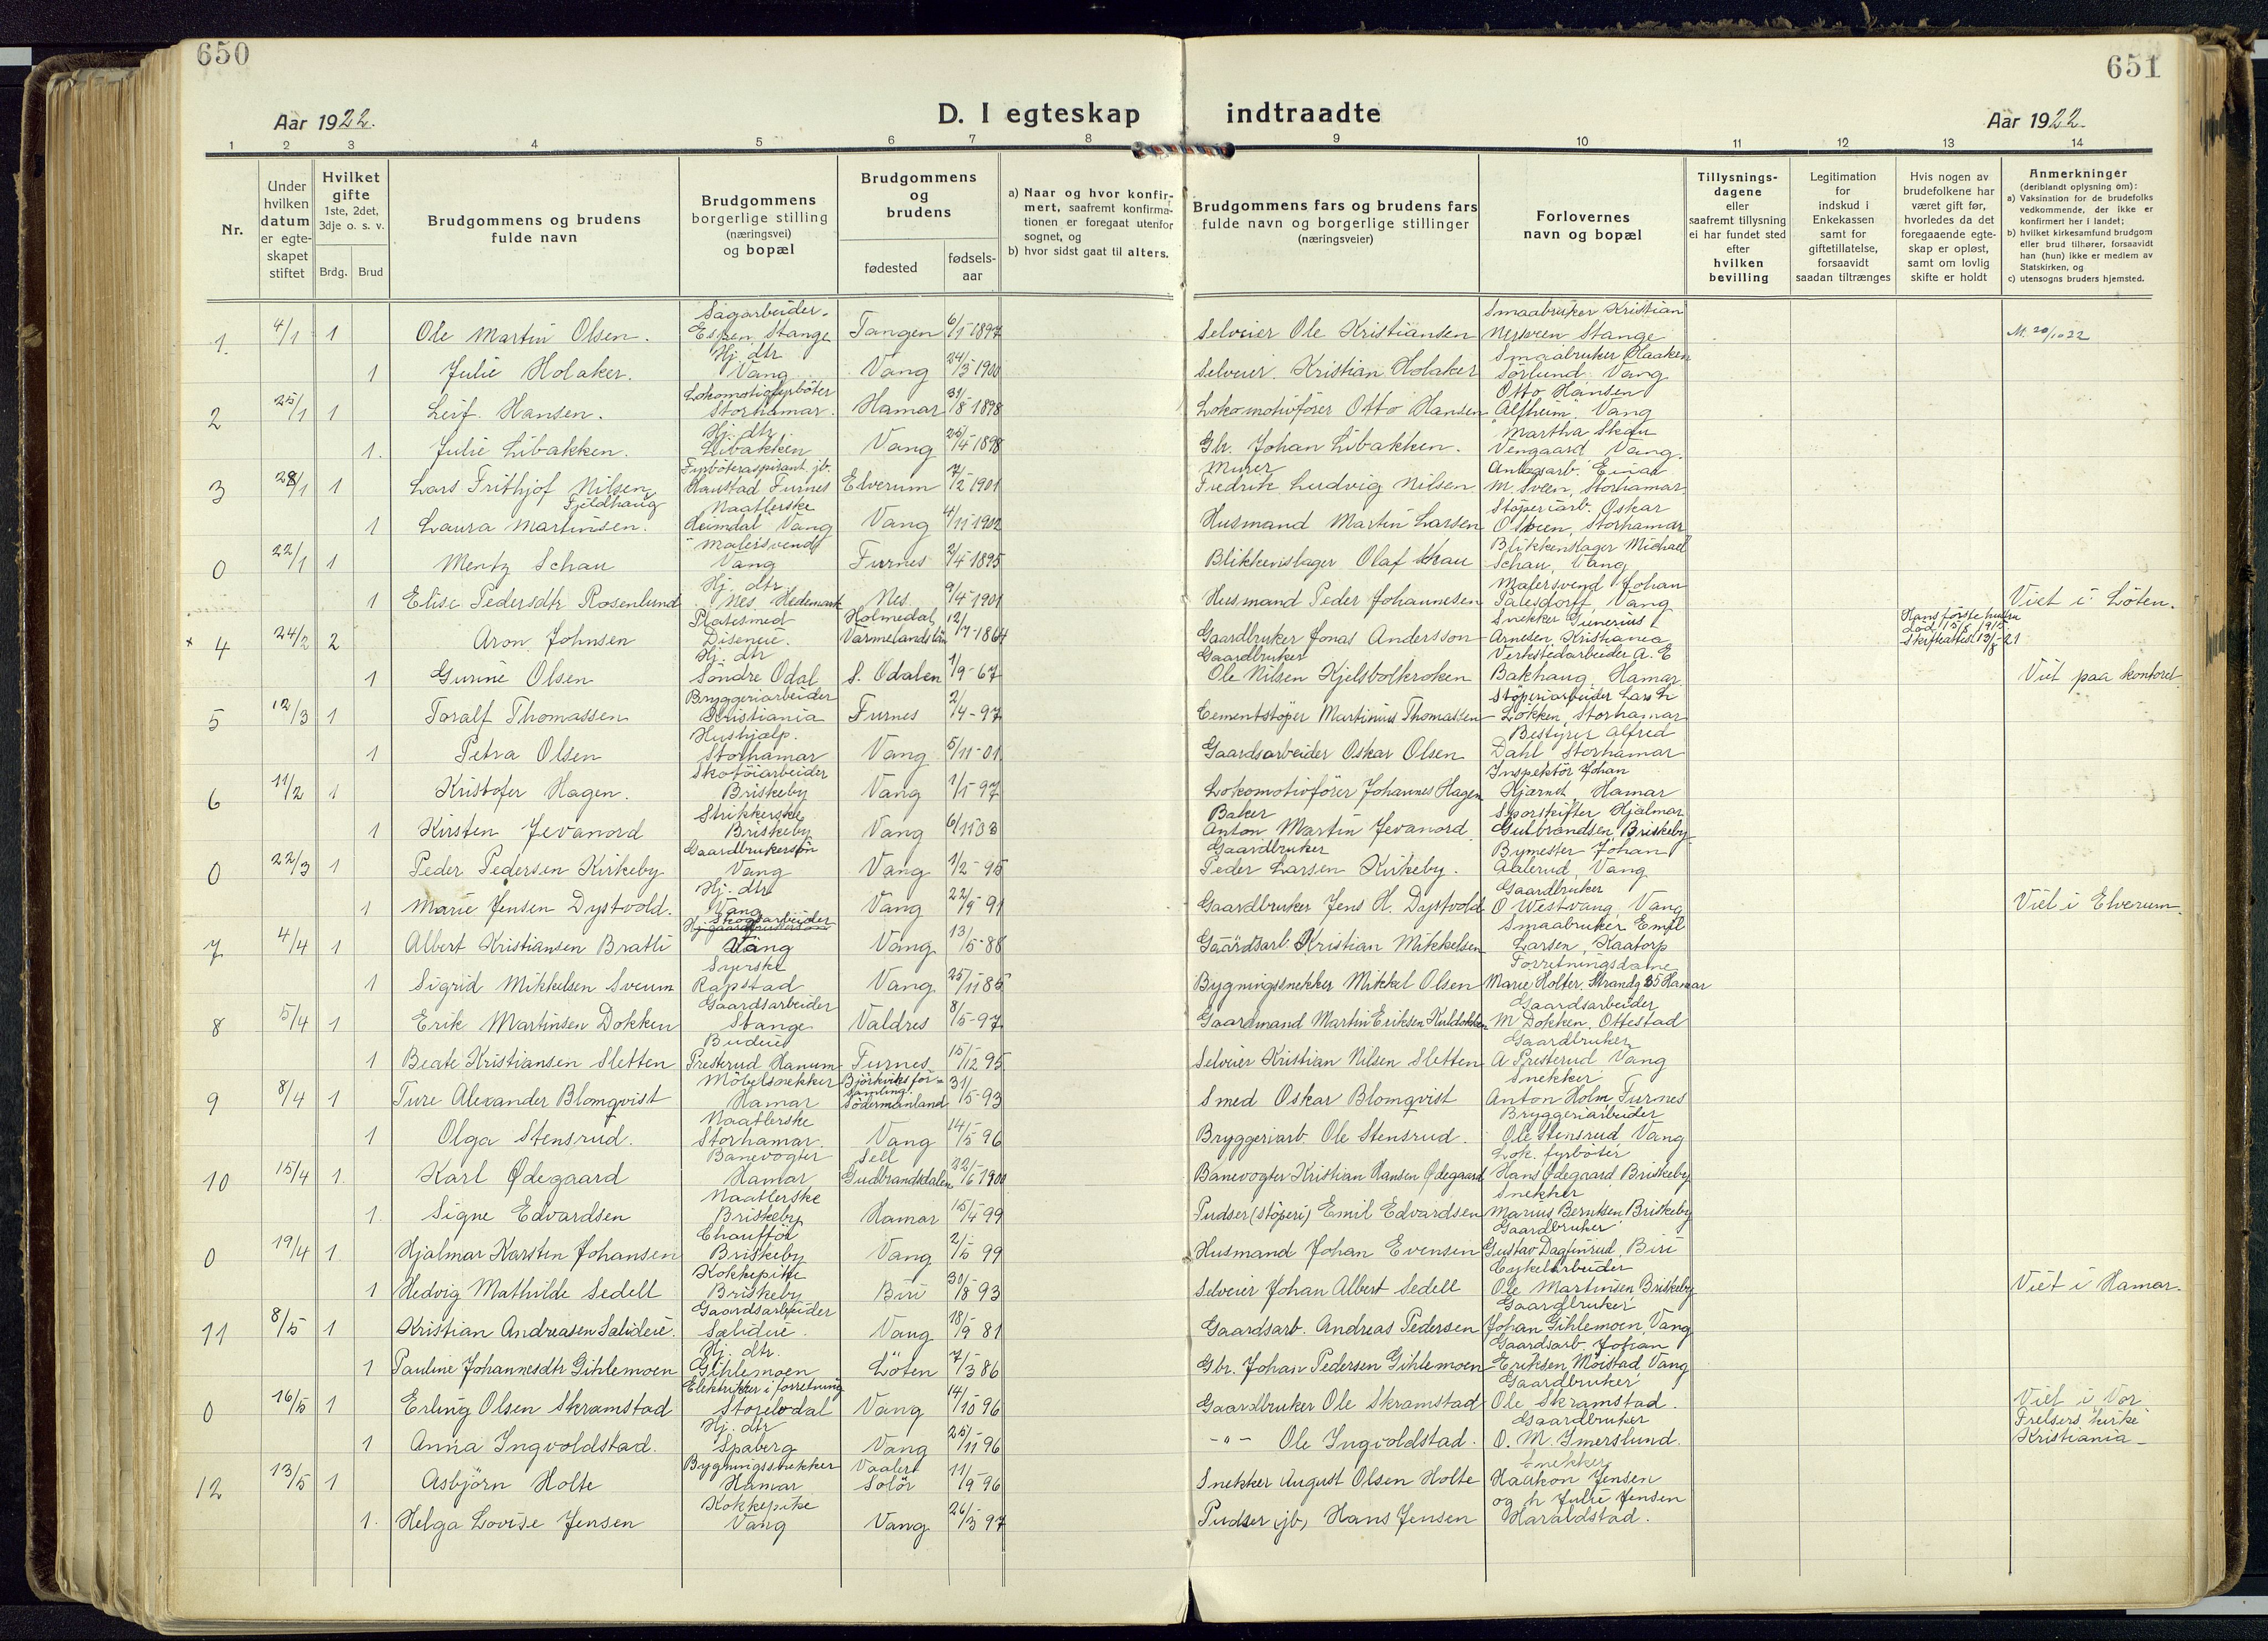 650
651
Aar 1922.
D. I egteskap indtraadte
Aar 1922.
1 2 3 4 5 6 7 8 9 10 11 12 13 14
Nr.
Under hvilken datum er egteskapet stiftet
Hvilket gifte 1ste, 2det, 3dje o. s. v.
Brdg. Brud
Brudgommens og brudens fulde navn
Brudgommens borgerlige stilling (næringsvei) og bopæl
Brudgommens og brudens
fødested
fødsels-aar
a) Naar og hvor konfirmert, saafremt konfirmationen er foregaat utenfor sognet, og
b) hvor sidst gaat til alters.
Brudgommens fars og brudens fars fulde navn og borgerlige stillinger (næringsveier)
Forlovernes navn og bopæl
Tillysningsdagene eller saafremt tillysning ei har fundet sted efter hvilken bevilling
Legitimation for indskud i Enkekassen samt for giftetillatelse, forsaavidt saadan tiltrænges
Hvis nogen av brudefolkene har været gift før, hvorledes da det foregaaende egteskap er opløst, samt om lovlig skifte er holdt
Anmerkninger (deriblandt oplysning om):
a) Vaksination for de brudefolks vedkommende, der ikke er konfirmert her i landet;
b) hvilket kirkesamfund brudgom eller brud tilhører, forsaavidt han (hun) ikke er medlem av Statskirken, og
c) utensogns bruders hjemsted.
1. 4/1 1 Ole Martin Olsen. Sagarbeider. Espen Stange Tangen 6/1-1897 Selveier Ole Kristiansen Smaabruker Kristian Nysveen Stange M. 20/10 22
1 Julie Holaker. Hj. dtr Vang Vang 24/3 1900 Selveier. Kristian Holaker Smaabruker Haaken Sörlund Vang
2 25/1 1 Leif Hansen. Lokomotivfyrböter Storhamar. Hamar 31/8 1898 Lokomotivförer Otto Hansen Otto Hansen Alfheim, Vang
1. Julie Libakken. Hj. dtr. Libakken Vang 25/4 1898 Gbr. Johan Libakken. Martha Skau Vengaard Vang.
3 28/1 1 Lars Frithjof Nilsen Fjeldhaug Fyrböteraspirant jb. Haustad Furnes Elverum 7/2 1901 Murer Fredrik Ludvig Nilsen Anlegsarb. Einar M. Sveen, Storhamar
1 Laura Martinsen. Naatlerske Heimdal Vang Vang 4/11 1902 Husmand Martin Larsen Stöperiarb. Oskar Olsen, Storhamar
0 22/1 1 Mentz Schau Malersvend Vang Furnes 2/4 1895 Blikkenslager Olaf Skau Blikkenslager Michael Schau, Vang
1 Elise Pedersdtr Rosenlund Hj. dtr Nes Hedemark Nes 9/4-1901 Husmand Peder Johannesen Malersvend Johan Palesdorff, Vang Viet i Löten.
x 4 24/2 2 Aron Johnsen Platesmed Diseneie. Holmedal Värmelands län 12/7-1864 Gaardbruker Jonas Andersson Snekker Gunerius Arnesen Kristiania Hans förste hustru död 15/8 1915. Skifteattest 13/8-21
1 Gurine Olsen Hj. dtr Söndre Odal S. Odalen 1/9-67 Gaardbruker Ole Nilsen Kjelsbolkroken Verkstedarbeider A. E Bakhaug, Hamar Viet paa kontoret
5 12/3 1 Toralf Thomassen Bryggeriarbeider Kristiania Furnes 2/4-97 Cementstöper Martinius Thomassen Stöperiarbeider Lars L Lökken, Storhamar
1 Petra Olsen Hushjælp. Storhamar Vang 5/11-01 Gaardsarbeider Oskar Olsen Bestyrer Alfred Dahl Storhamar
6 11/2 1 Kristofer Hagen. Skotöiarbeider Briskeby Vang 1/1-97 Lokomotivförer Johannes Hagen Inspektör Johan Hjærnet, Hamar
1 Kirsten Jevanord Strikkerske Briskeby Vang 6/11 03 Baker Anton Martin Jevanord Sporskifter Hjalmar Gulbrandsen, Briskeby
0 22/3 1 Peder Pedersen Kirkeby Gaardbrukersön Vang Vang 1/2-95 Gaardbruker Peder Larsen Kirkeby. Bymester Johan Aalerud, Vang
1 Marie Jensen Dystvold. Hj. dtr Vang Vang 22/9-91 Gaardbruker Jens H. Dystvold Gaardbruker O Westvang, Vang Viet i Elverum.
7 4/4 1 Albert Kristiansen Bratli Skogsarbeider Vang Vang 13/5-88 Gaardsarb. Kristian Mikkelsen Smaabruker Emil Larsen, Kaatorp
1 Sigrid Mikkelsen Sveum Syerske Rapstad Vang 25/11 85 Bygningssnekker Mikkel Olsen Forretningsdame Marie Holter, Strandg 35 Hamar
8 5/4 1 Erik Martinsen Dokken Gaardsarbeider Stange Valdres 8/5-97 Gaardmand Martin Eriksen Huldokken Gaardsarbeider M Dokken, Ottestad
1 Beate Kristiansen Sletten Budeie Presterud Hanum Furnes 15/12 95 Selveier Kristian Nilsen Sletten Gaardbruker A Presterud Vang
9 8/4 1 Ture Alexander Blomqvist Möbelsnekker Hamar Björkviks församling Södermanland 31/5-93 Smed Oskar Blomqvist Snekker Anton Holm, Furnes
1 Olga Stensrud. Naatlerske Storhamar. Vang 14/5 96 Bryggeriarb. Ole Stensrud. Bryggeriarbeider Ole Stensrud, Vang
10 15/4 1. Karl Ødegaard Banevogter Hamar Sell Gudbrandsdalen 22/6 1900 Banevogter Kristian Hansen Ødegaard Lok. fyrböter Hans Ødegaard Briskeby
1. Signe Edvardsen Naatlerske Briskeby Hamar 15/4 99 Pudser (stöperi) Emil Edvardsen Snekker Marius Berntsen Briskeby
0 19/4 1. Hjalmar Karsten Johansen Chaufför Briskeby Vang 2/5 99 Husmand Johan Evensen Gaardbruker Gustav Dagfinrud, Biri
1 Hedvig Mathilde Sedell Kokkepike Briskeby Biri 30/8 93 Selveier Johan Albert Sedell Cykelarbeider Ole Martinsen, Briskeby Viet i Hamar.
11 8/5 1 Kristian Andreasen Salideie. Gaardsarbeider Salideie. Vang 18/9 81 Gaardsarb. Andreas Pedersen Gaardbruker Johan Gihlemoen, Vang
1 Pauline Johannesdtr Gihlemoen Hj. dtr. Gihlemoen Löten 7/3 86 Gbr. Johan Pedersen Gihlemoen Gaardsarb. Johan Eriksen Möistad, Vang
0 16/5 1 Erling Olsen Skramstad Elektrikker i forretning Storelvdal Vang 14/10 96 Gaardbruker Ole Skramstad Gaardbruker Ole Skramstad. Viet i Vor
1 Anna Ingvoldstad. Hj. dtr Spaberg Vang 25/11 96 -"- Ole Ingvoldstad. Gaardbruker O. M. Imerslund. Frelsers kirke Kristiania
12 13/5 1 Asbjörn Holte Bygningssnekker Hamar Vaaler Solör 11/9 96 Snekker August Olsen Holte Snekker Haakon Jensen
1. Helga Lovise Jensen Kokkepike Vang Vang 26/3 97 Pudser jb, Hans Jensen og h Julie Jensen Haraldstad.